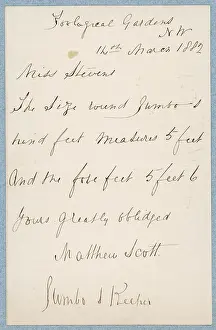 Zoological Gardens
N.W
14th March 1882
Miss Stevens
The Size round Jumbo s
hind feet measures 5 feet
And the fore feet 5 feet 6
yours greatly oblidged
Matthew Scott.
Jumbo s Keeper